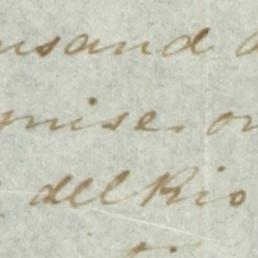 usand
mise. on
del Rio